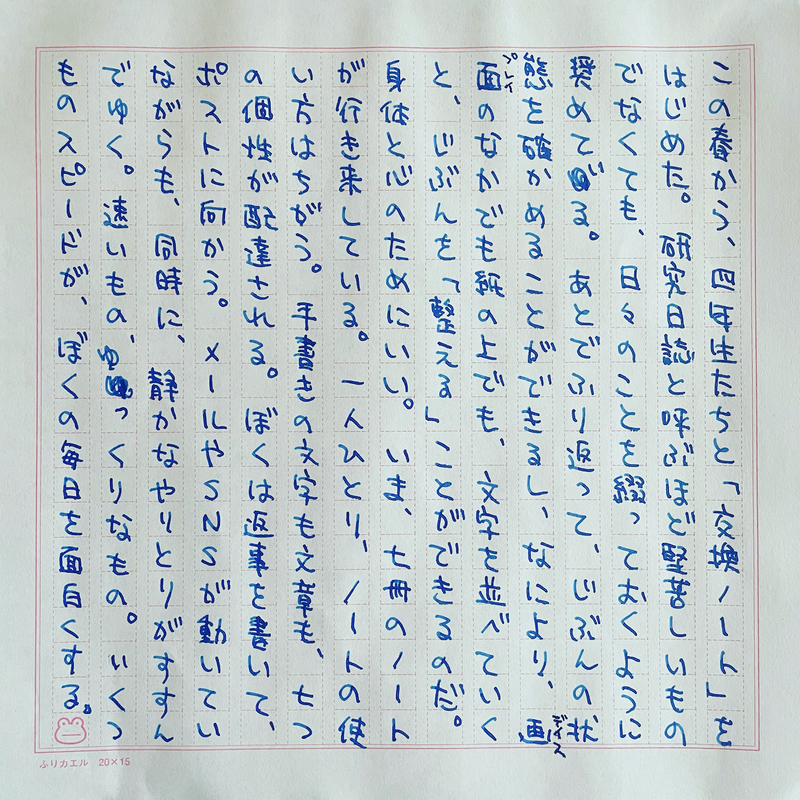 この春から、四年生たちと「交換ノート」を
はじめた。研究日誌と呼ぶほど堅苦しいもの
でなくても、日々のことを綴っておくように
奨めてる。あとでふり返って、じぶんの状
態を確かめることができるし、なにより、画
面のなかでも紙の上でも、文字を並べていく
と、じぶんを「整える」ことができるのだ。
身体と心のためにいい。いま、七冊のノート
が行き来している。一人ひとり、ノートの使
い方はちがう。手書きの文字も文章も、七つ
の個性が配達される。ぼくは返事を書いて、
ポストに向かう。メールやSNSが動いてい
ながらも、同時に、静かなやりとりがすすん
でゆく。速いもの、ゆっくりなもの。いくつ
ものスピードが、ぼくの毎日を面白くする。
ディス
プレイ
ふりカエル 20×15